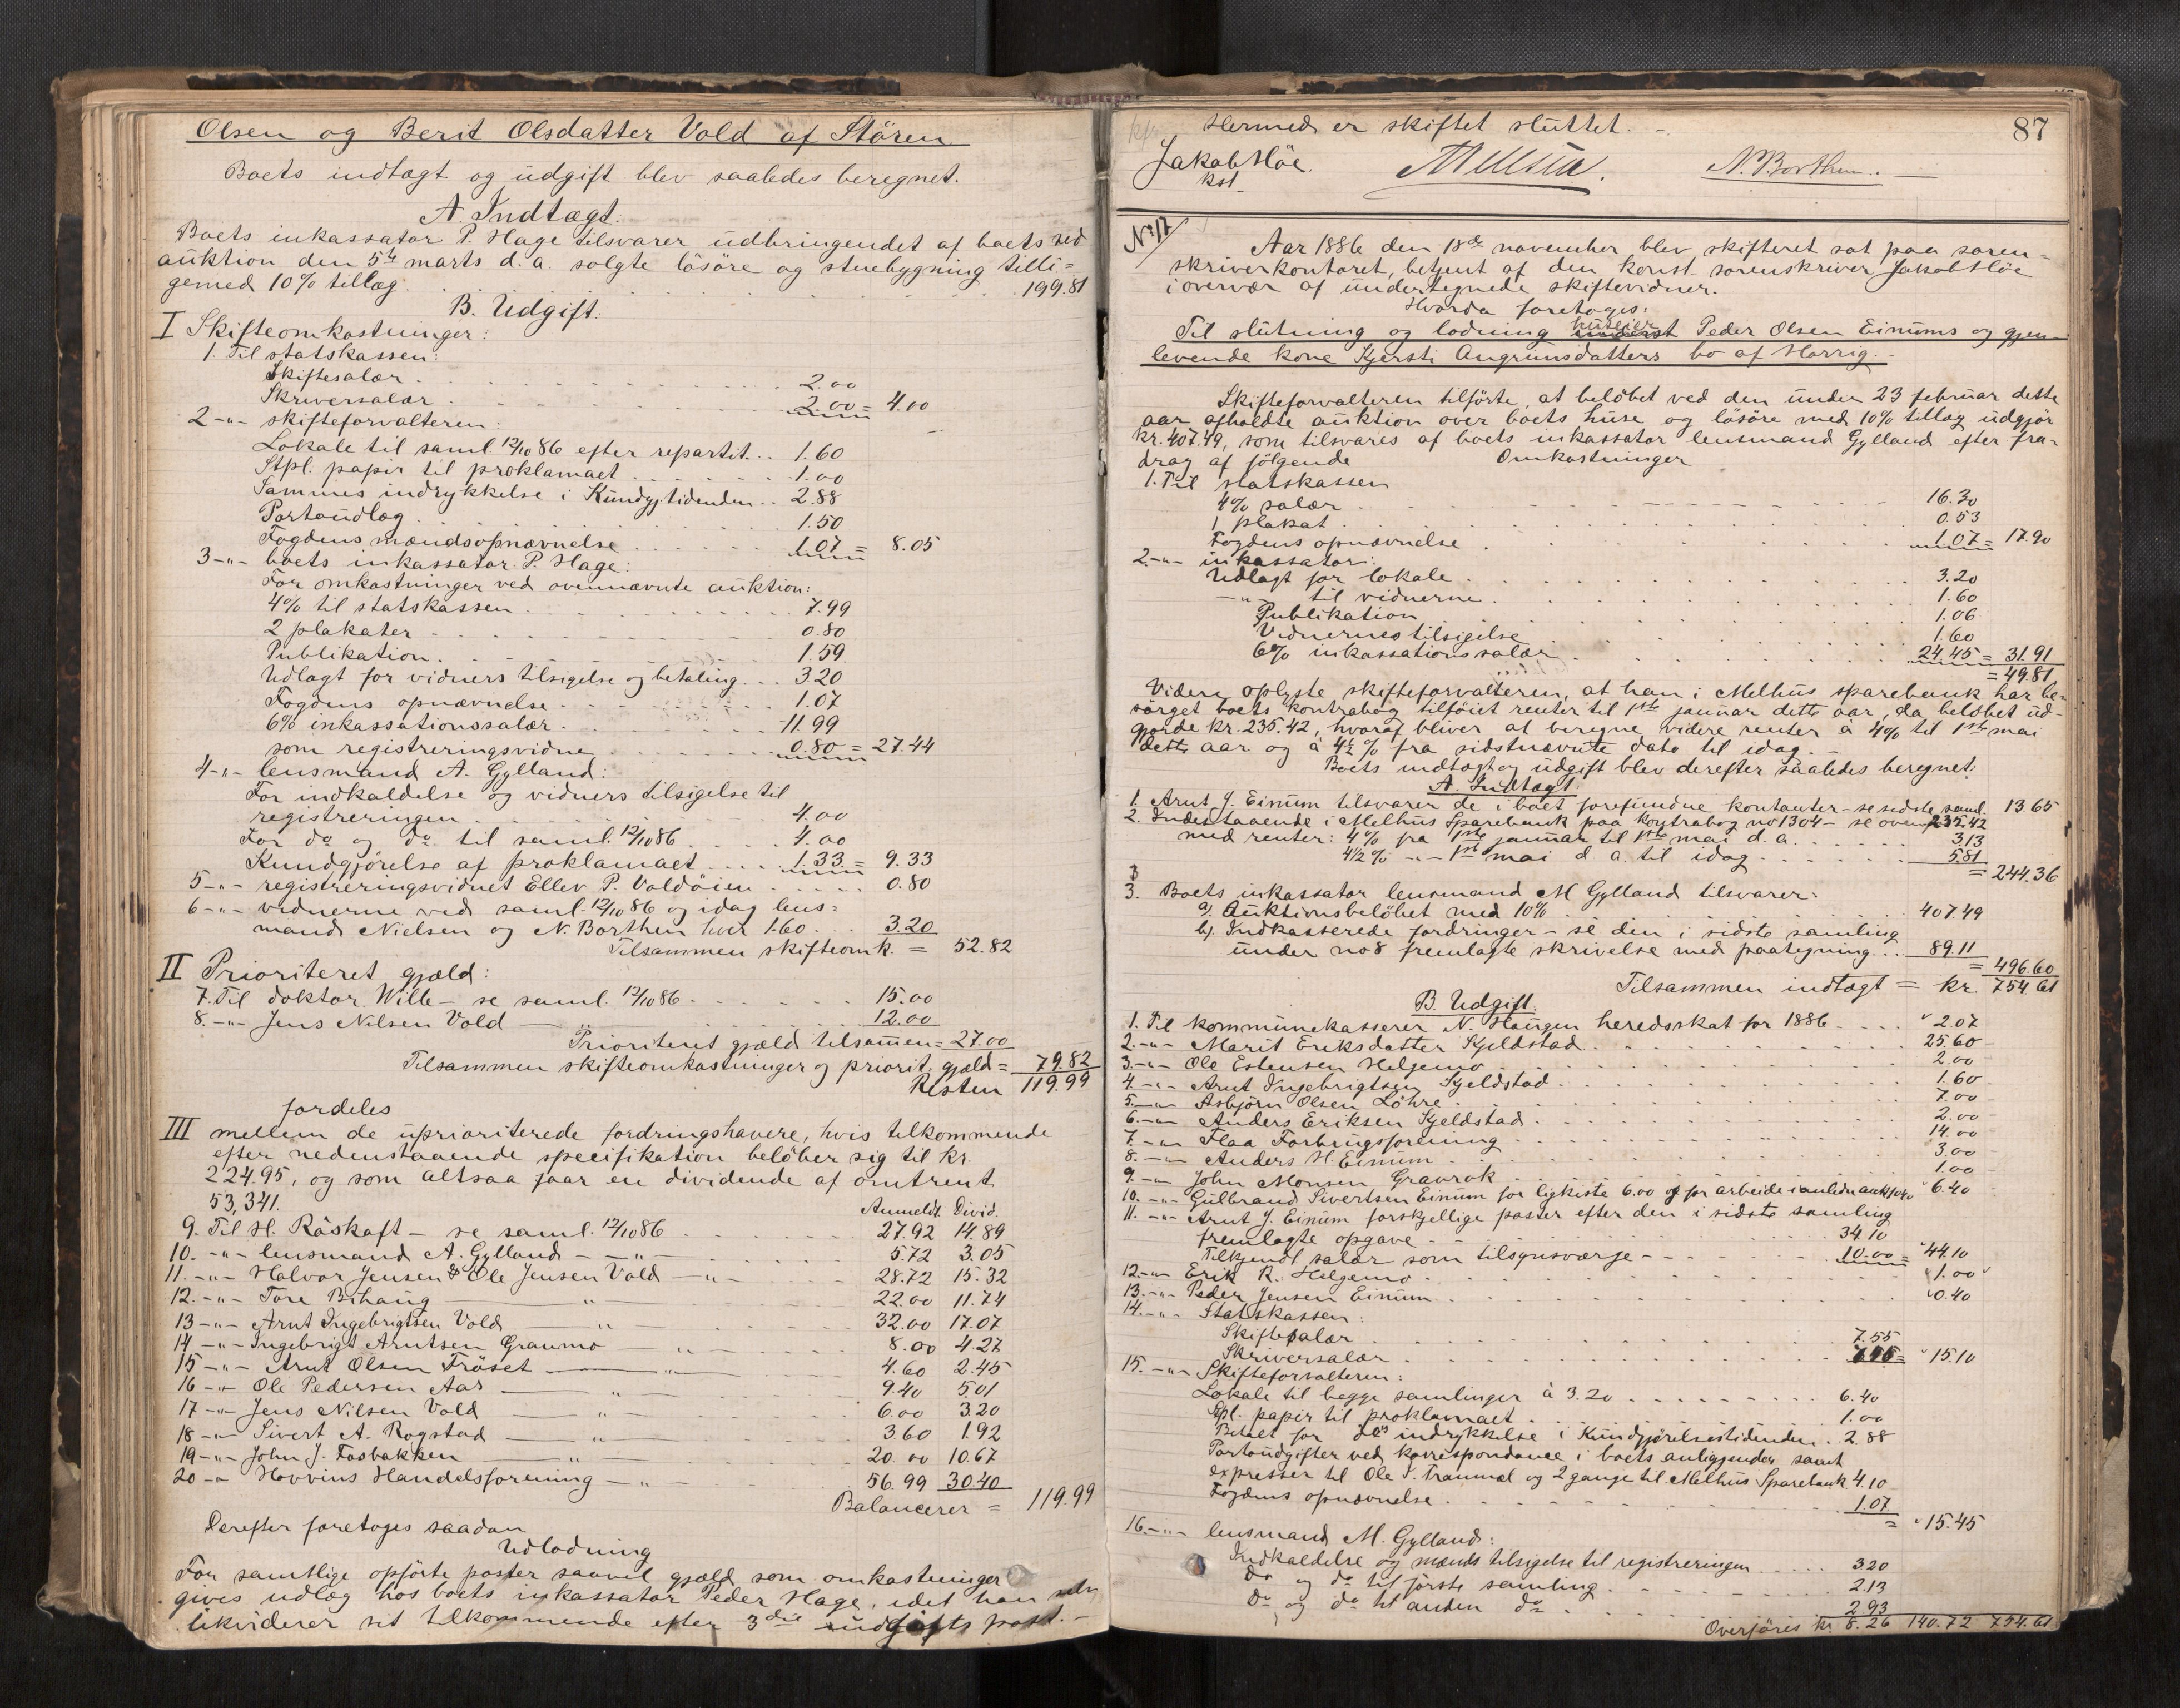 Olsen og Berit Olsdatter Vold af Støren
Boets indtægt og udgift blev saaledes beregnet.
A. Indtægt.
Boets inkassator P. Hage tilsvarer udbringendet af boets ved
auktion den 5te marts d. a. solgte løsøre og stuebygning tilli=
gemed 10% tillæg . . . 199.81
B. Udgift.
I Skifteomkostninger:
1. Til statskassen:
Skiftesalær . . . 2.00
Skriversalær . . . 2.00 = 4.00
2 -"- skifteforvalteren:
Lokale til saml. 12/10 86 efter repartit. . . 1.60
Stpl. papir til proklamaet . . . 1.00
Sammes indrykkelse i Kundgj.tidenden . . 2.88
Portoudlæg . . . 1.50
Fogdens mændsopnævnelse . . . 1.07 = 8.05
3 -"- boets inkassator P. Hage:
For omkostninger ved ovennævnte auktion:
4% til statskassen . . . 7.99
2 plakater . . . 0.80
Publikation . . . 1.59
Udlagt for vidners tilsigelse og betaling . . . 3.20
Fogdens opnævnelse . . . 1.07
6% inkassationssalær . . . 11.99
som registreringsvidne . . . 0.80 = 27.44
4 -"- lensmand A. Gylland:
For indkaldelse og vidners tilsigelse til
registreringen . . . 4.00
For do og do til saml. 12/10 86 . . . 4.00
Kundgjørelse af proklamaet . . . 1.33 = 9.33
5 -"- registreringsvidnet Ellev P. Voldøien . . . 0.80
6 -"- vidnerne ved saml. 12/10 86 og idag lens=
mand Nielsen og N. Borthen hver 1.60 . . . 3.20
Tilsammen skifteomk. = 52.82
II Prioriteret gjæld:
7. Til doktor Wille - se saml. 12/10 86 . . . 15.00
8. -"- Jens Nilsen Vold — " — 12.00
Prioriteret gjæld tilsammen = 27.00
Tilsammen skifteomkostninger og priorit. gjæld = 79.82
Resten 119.99
fordeles
III mellem de uprioriterede fordringshavere, hvis tilkommende
efter nedenstaaende specifikation beløber sig til kr.
224.95, og som altsaa faar en dividende af omtrent
53,341.
Anmeldt. Divid.
9. Til H. Råskaft - se saml. 12/10 86 . . . 27.92 14.89
10. -"- lensmand A. Gylland — " — 5.72 3.05
11. -"- Halvor Jensen & Ole Jensen Vold — " — 28.72 15.32
12. -"- Tore Bihaug — " — 22.00 11.74
13 -"- Arnt Ingebrigtsen Vold — " — 32.00 17.07
14 -"- Ingebrigt Arntsen Graumo — " — 8.00 4.27
15 -"- Arnt Olsen Frøset — " — 4.60 2.45
16 -"- Ole Pedersen Aas — " — 9.40 5.01
17 -"- Jens Nilsen Vold — " — 6.00 3.20
18 -"- Sivert A. Rogstad — " — 3.60 1.92
19 -"- John J. Fosbakken — " — 20.00 10.67
20 -"- Hovins Handelsforening — " — 56.99 30.40
Balancerer = 119.99
Derefter foretoges saadan
Udlodning
For samtlige opførte poster saavel gjæld som omkostninger
gives udlæg hos boets inkassator Peder Hage, idet han selv
likviderer sit tilkommende efter 3die udgifts post. -
Hermed er skiftet sluttet. -
87
Jakob Høe
kst.
N. Borthen.
No 17
Aar 1886 den 18de november blev skifteret sat paa soren=
skriverkontoret, betjent af den konst. sorenskriver Jakob Høe
i overvær af undertegnede skiftevidner.
Hvorda foretoges:
Til slutning og lodning huseier inderst Peder Olsen Einums og gjen=
levende kone Kjersti Angrunsdatters bo af Horrig.
Skifteforvalteren tilførte, at beløbet ved den under 23 februar dette
aar afholdte auktion over boets huse og løsøre med 10% tillæg udgjør
kr. 407.49, som tilsvares af boets inkassator lensmand Gylland efter fra=
drag af følgende Omkostninger
1. Til statskassen
4% salær . . . 16.30
1 plakat . . . 0.53
Fogdens opnævnelse . . . 1.07 = 17.90
2. -"- inkassator:
Udlagt for lokale . . . 3.20
-"- til vidnerne . . . 1.60
Publikation . . . 1.06
Vidnernes tilsigelse . . . 1.60
6% inkassationssalær . . . 24.45 = 31.91
= 49.81
Videre oplyste skifteforvalteren, at han i Melhus sparebank har be=
sørget boets kontrabog tilføiet renter til 1ste januar dette aar, da beløbet ud=
gjorde kr. 235.42, hvoraf bliver at beregne videre renter à 4% til 1ste mai
dette aar og à 4½% fra sidstnævnte dato til idag. -
Boets indtægt og udgift blev derefter saaledes beregnet:
A. Indtægt.
1. Arnt J. Einum tilsvarer de i boet forefundne kontanter - se sidste saml. 13.65
2. Indestaaende i Melhus Sparebank paa kontrabog no 1304 - se oven 235.42
med renter: 4% fra 1ste januar til 1ste mai d. a. . . . 3.13
4½% -"- 1ste mai d. a. til idag . . . 5.81
= 244.36
3. Boets inkassator lensmand M Gylland tilsvarer:
a). Auktionsbeløbet med 10% . . . 407.49
b). Indkasserede fordringer - se den i sidste samling
under no 8 fremlagte skrivelse med paategning . . . 89.11
= 496.60
Tilsammen indtægt = kr. 754.61
B. Udgift.
1. Til kommunekasserer N. Haugen heredsskat for 1886 . . . 2.07
2. -"- Marit Eriksdatter Kjeldstad . . . 25.60
3. -"- Ole Estensen Helgemo . . . 2.00
4. -"- Arnt Ingebrigtsen Kjeldstad . . . 1.60
5. -"- Asbjørn Olsen Løhre . . . 7.00
6. -"- Anders Eriksen Kjeldstad . . . 2.00
7. -"- Flaa Forbrugsforening . . . 14.00
8. -"- Anders H. Einum . . . 3.00
9. -"- John Monsen Gravrok . . . 1.00
10. -"- Gulbrand Sivertsen Einum for ligkiste 6.00 og for arbeide i anledn. auk. 0.40 6.40
11. -"- Arnt J. Einum forskjellige poster efter den i sidste samling
fremlagte opgave . . . 34.10
Tilkjendt salær som tilsynsværge . . . 10.00 = 44.10
12. -"- Erik R. Helgemo . . . 1.00
13. -"- Peder Jensen Einum . . . 0.40
14. -"- Statskassen:
Skiftesalær . . . 7.55
Skriversalær . . . 7.55 = 15.10
15. -"- Skifteforvalteren:
Lokale til begge samlinger à 3.20 . . . 6.40
Stpl. papir til proklamaet . . . 1.00
Betalt for dets indrykkelse i Kundgjørelsestidenden . 2.88
Portoudgifter ved korrespondance i boets anliggender samt
expresser til Ole T. Tranmæl og 2 gange til Melhus Sparebank 4.10
Fogdens opnævnelse . . . 1.07
= 15.45
16. -"- lensmand M. Gylland:
Indkaldelse og mænds tilsigelse til registreringen . . . 3.20
do og do til første samling . . . 2.13
do og do til anden do . . . 2.93
Overføres kr. 8.26 140.72 754.61